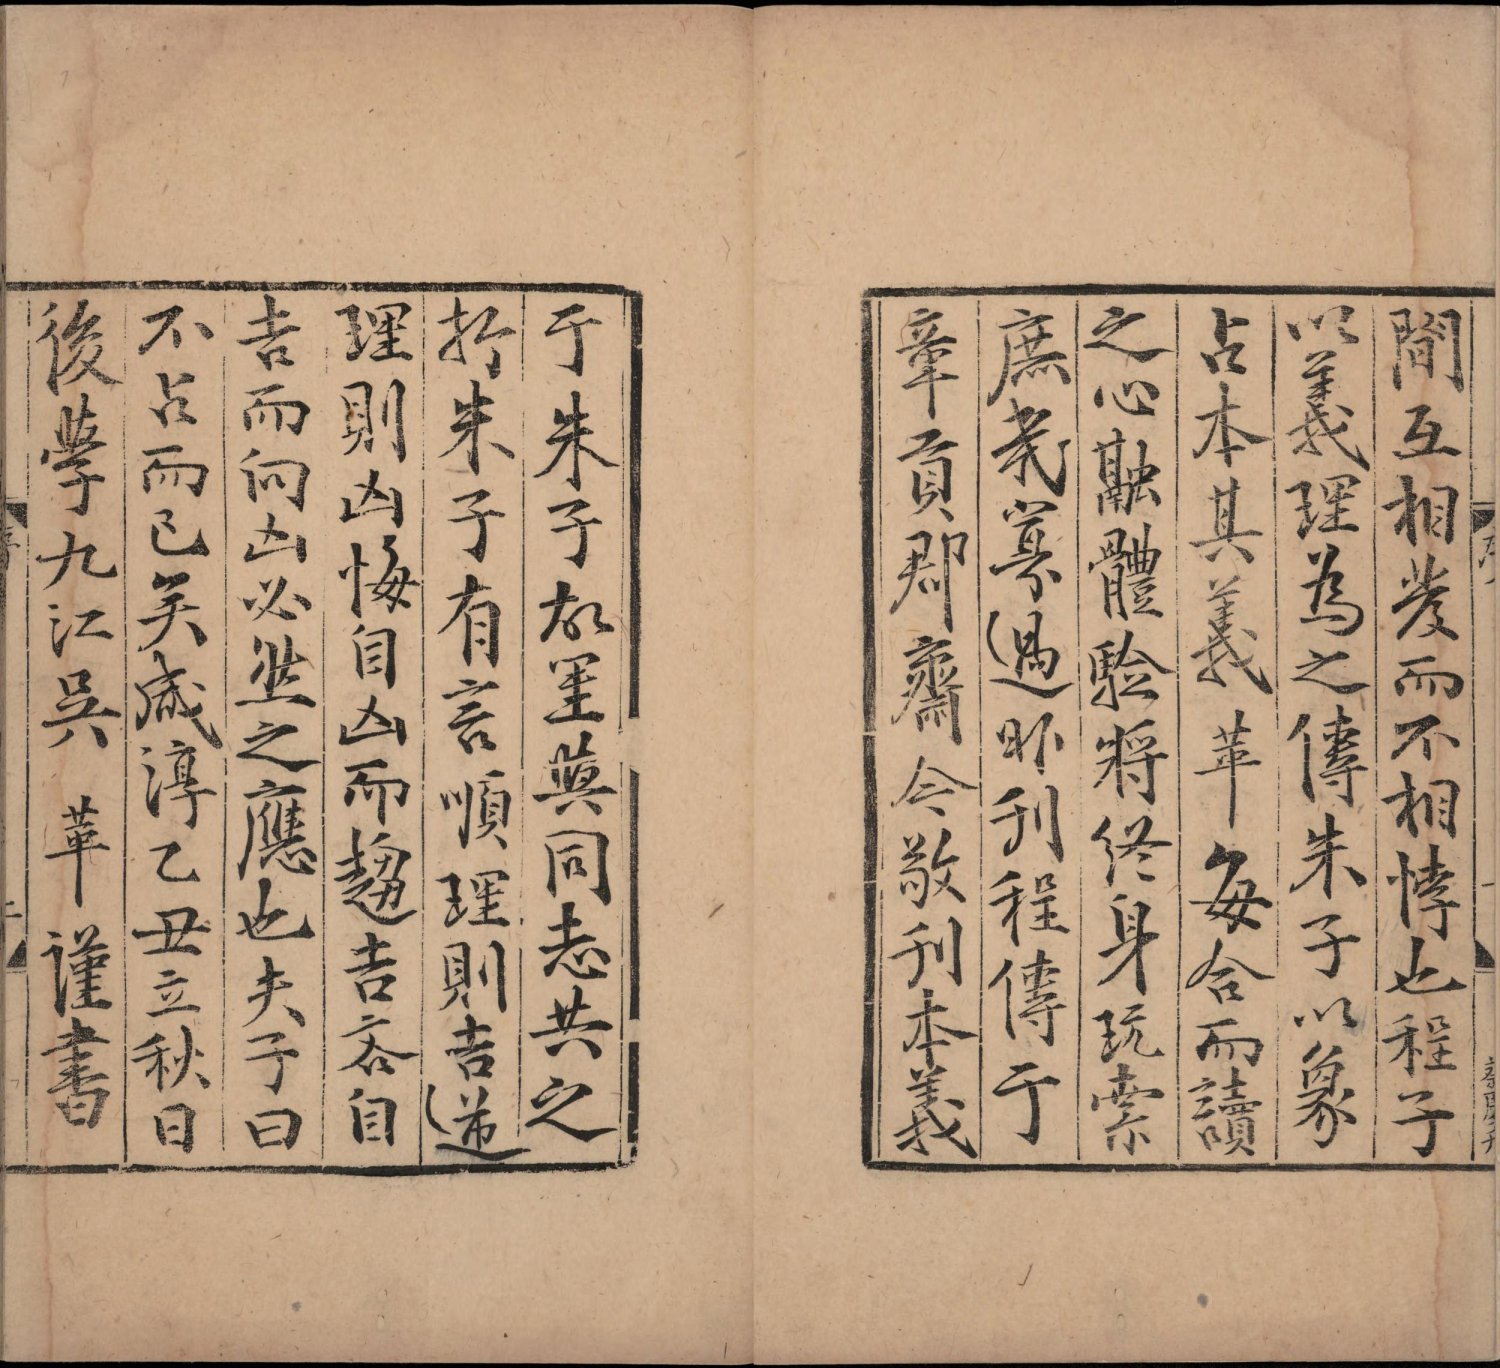 間互相發而不相悖也程子
以義理爲之傳朱子以象
占本其義革每合而讀
之心融體驗將終身玩索
庶幾寡過昨刊程傳于
章貢郡齋今敬刊本義
于朱子故里與同志共之
抑朱子有言順理則吉逆
理則凶悔自凶而趨吉吝自
吉而向凶必然之應也夫子曰
不占而已矣咸淳乙丑立秋日
後學九江吳革謹書
序
二